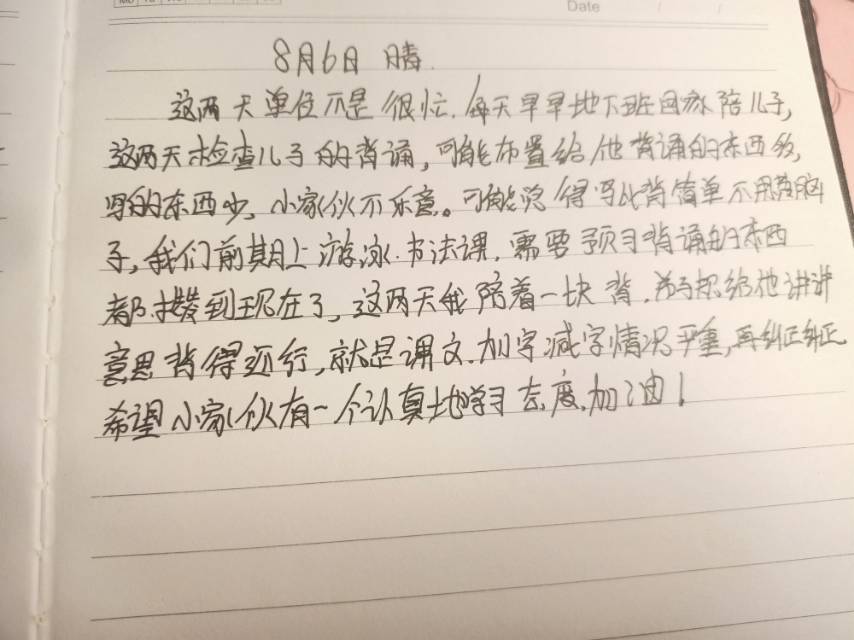 Date
8月6日 晴.
这两天单位不是很忙.每天早早地下班回家陪儿子,
这两天检查儿子的背诵,可能布置给他背诵的东西多,
写的东西少,小家伙不乐意。可能觉得写比背简单不用费脑
子,我们前期上游泳.书法课.需要预习背诵的东西
都拨到现在了,这两天我陪着一块背.给他讲讲
意思背得还行,就是课文.加字减字情况严重,再纠正纠正
希望小家伙有一个认真地学习态度.加油!